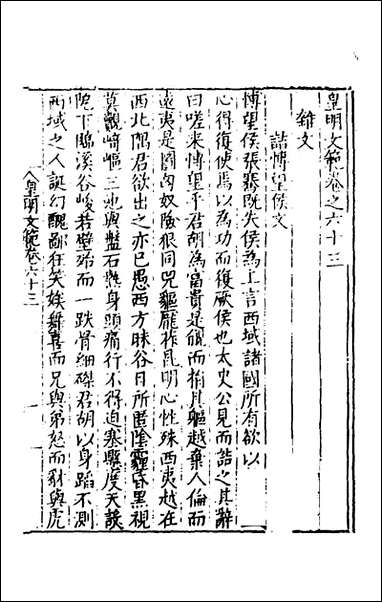 皇明文範卷之六十三
雜文
詰博望侯文
博望侯張騫既失侯為上言西域諸國所有欲以
心得復使焉以為功而復厥侯也太史公見而詰之其辭
曰嗟來博望乎君胡為富貴是覬而捐其軀越棄人倫而
遠夷是圖匈奴險狠同兕軀龎祚昆明心性殊西夷越在
西北隅君欲出之亦已愚西方昧谷日所匿陰霾昏黑視
莫覿崎嶇三池與盤石縣身頭痛行不得迫塞驢度天談
阮下臨溪谷峻若壁殆而一跌骨細磔君胡以身蹈不測
西域之人誕幻醜鄙狂笑娭舞喜而兄與弟怒而豺與虎
皇明文範卷六十三
一